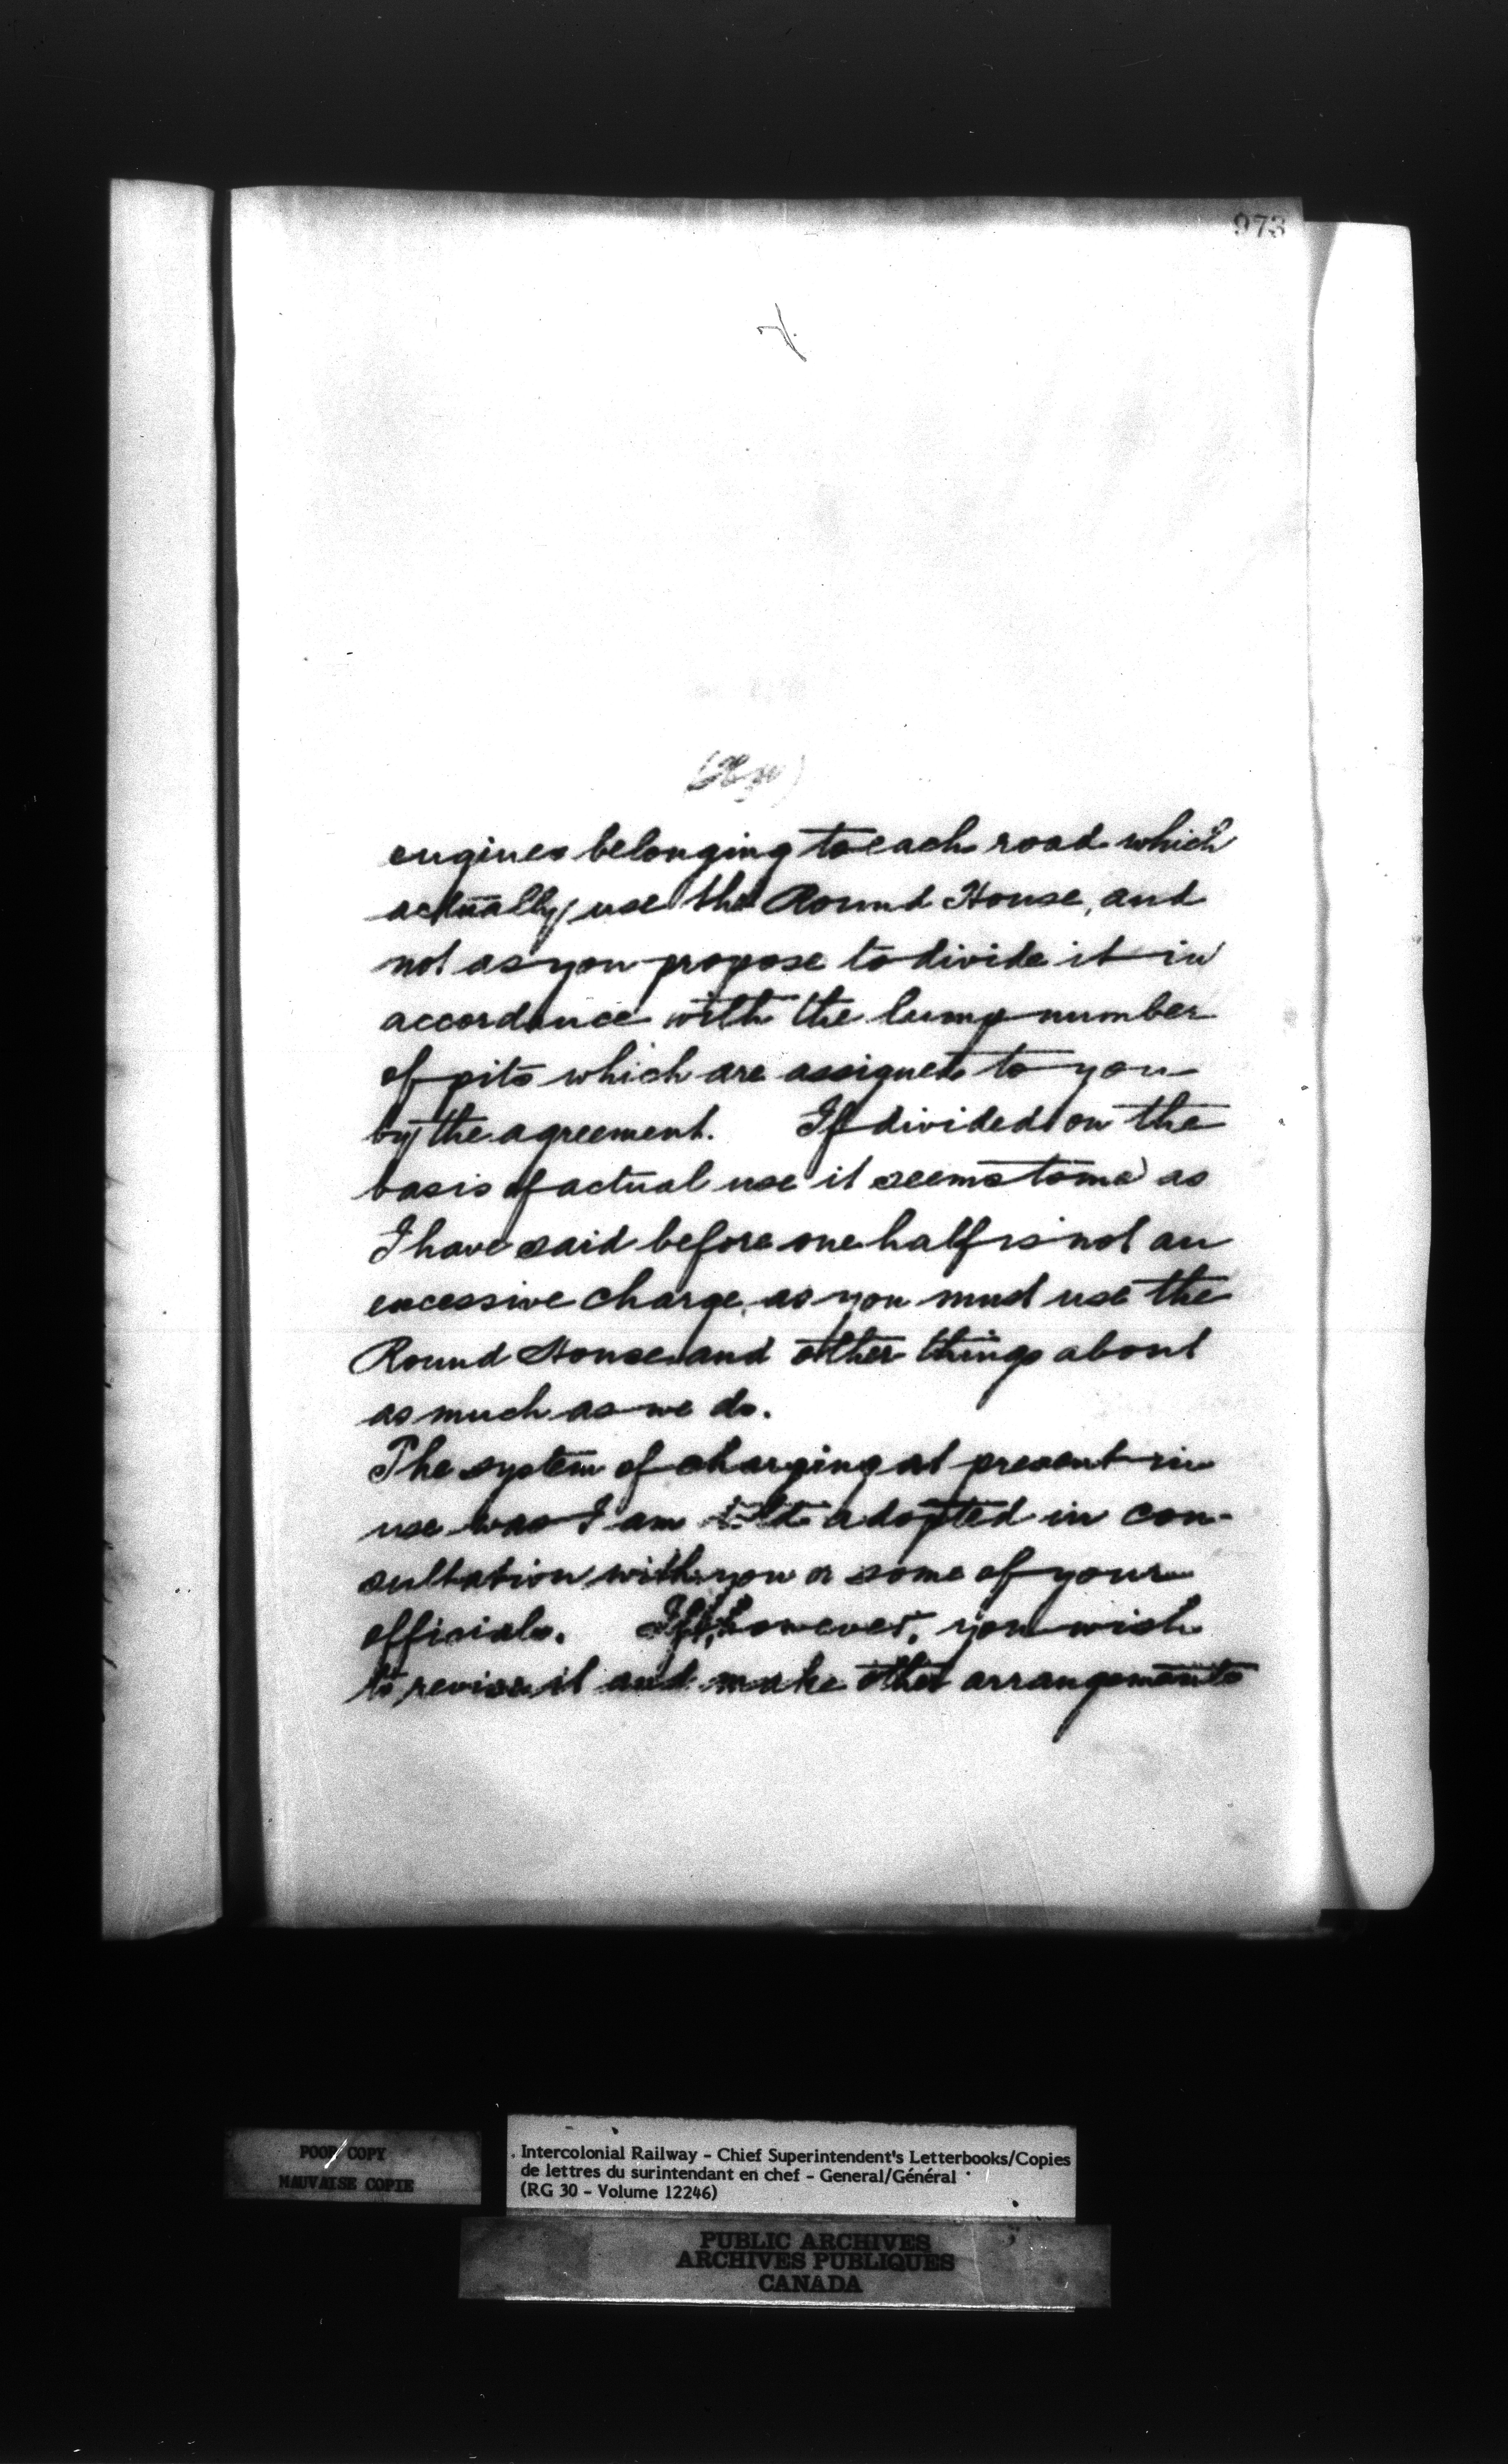 973
engines belonging to each road which
actually use the Round House, and
not as you propose to divide it in
accordance with the lump number
of pits which are assigned to you
by the agreement. If divided on the
basis of actual use it seems to me as
I have said before one half is not an
excessive charge, as you must use the
Round House and other things about
as much as we do.
The system of charging at present in
use was I am told adopted in con-
sultation with you or some of your
officials. If, however, you wish
to revise it and make other arrangements
POOR COPY
MAUVAISE COPIE
Intercolonial Railway - Chief Superintendent's Letterbooks/Copies
de lettres du surintendant en chef - General/Général
(RG 30 - Volume 12246)
PUBLIC ARCHIVES
ARCHIVES PUBLIQUES
CANADA